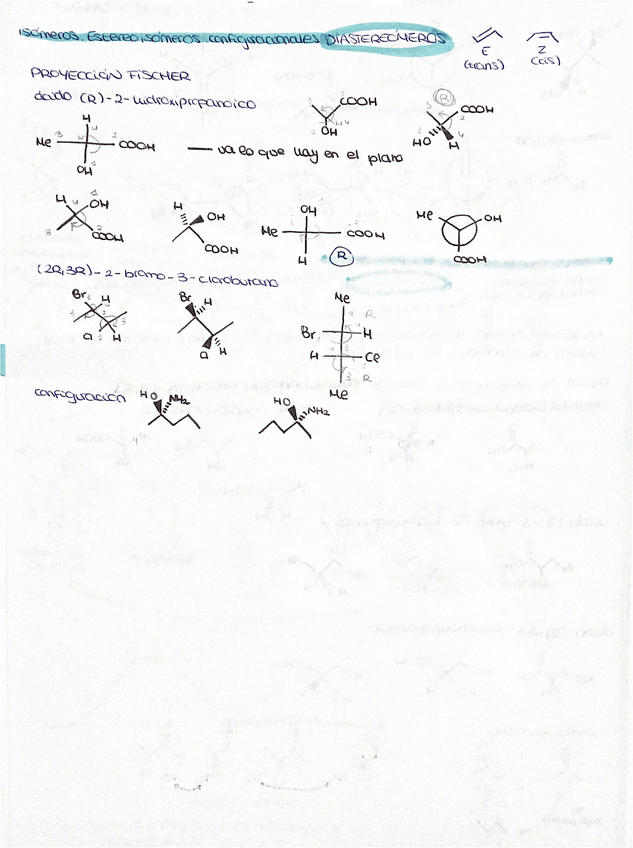 isómeros. Estereoisómeros configuracionales DIASTEREÓMEROS
E (trans)
Z (cis)
PROYECCIÓN FISCHER
ácido (R)-2-hidroxipropanoico
COOH
OH
H
R
COOH
HO
H
H
Me COOH
OH
— va lo que hay en el plano
H OH
COOH
H
OH
COOH
OH
Me COOH
H
R
Me OH
COOH
(2R,3R)-2-bromo-3-clorobutano
Br H
Cl H
Br H
Cl H
Me
R
Br H
H Cl
R
Me
configuración
HO NH2
HO NH2